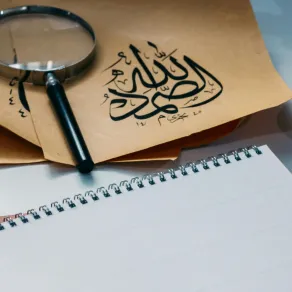 الله الصمد